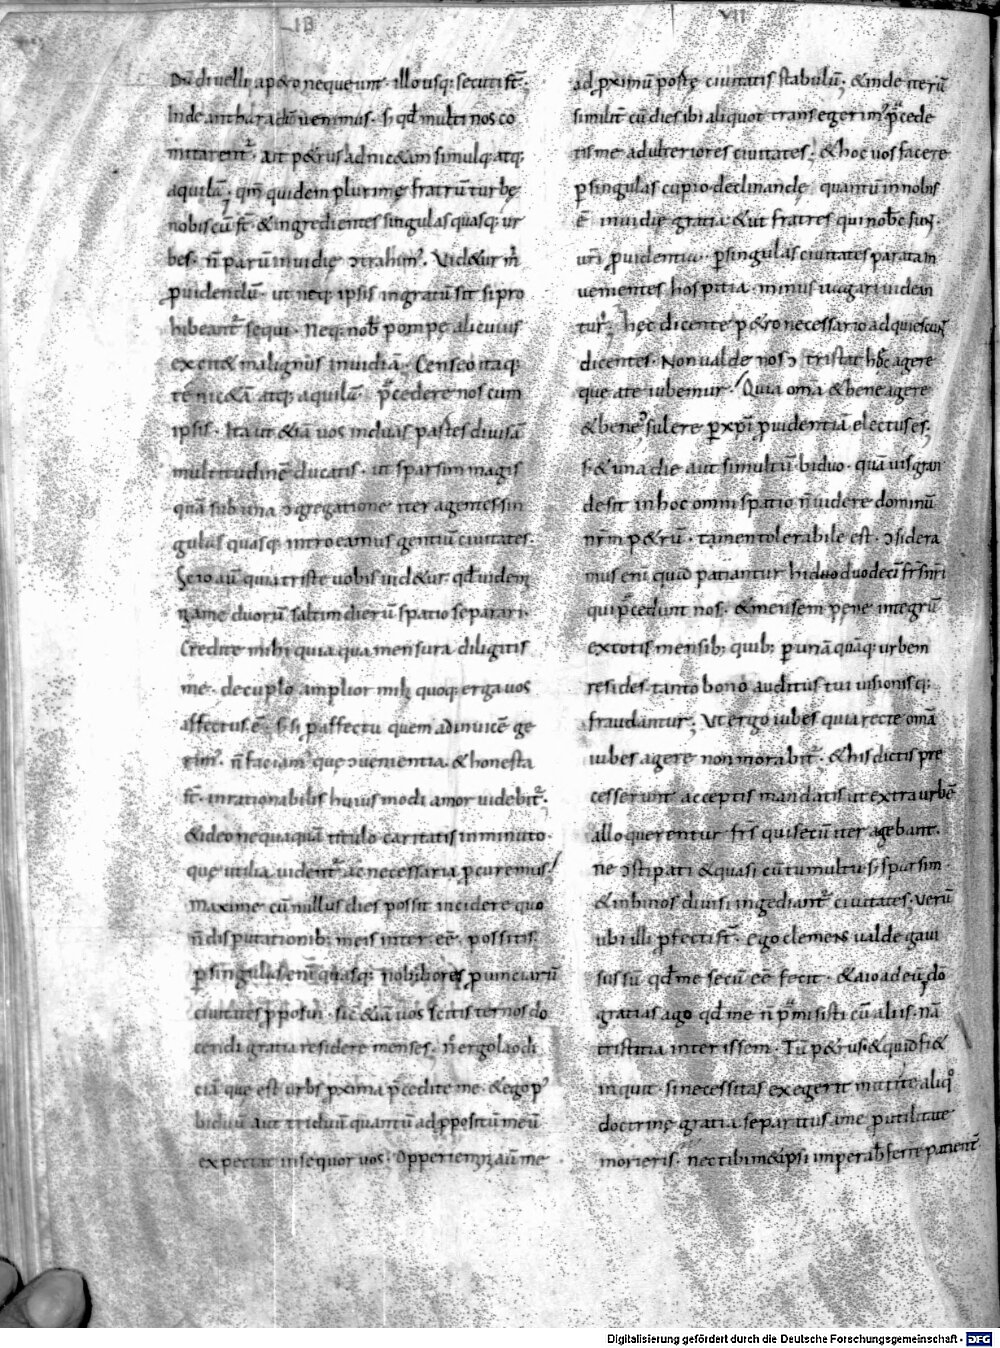 LIB VII
Dū diuelli a p&ro nequeunt. illo usq; secuti sť;
Inde antharadū uenimus. & qđ multi nos co
mitarent᷑. ait p&rus ad nic&am simulq; atq;
aquilā; qm̄ quidem plurimę fratrū turbę
nobiscū sť. & ingredientes singulas quasq; ur
bes. ñ parū inuidię ↄtrahim᷒. Vid&ur m̄
ꝓuidendū. ut neq; ipsis ingratū sit si pro
hibeant᷑ sequi. Neq; nob̄ pompę alicuius
exerc& malignus inuidiā. Censeo itaq;
te nic&ā atq; aquilā p̄cedere nos cum
ipsis. Ita ut &iā uos in duas partes diuisā
multitudinē ducatis. ut sparsim magis
quā sub una ↄgregatione iter agentes sin
gulas quasq; introeamus gentiū ciuitates.
Scio aū quia triste uobis uid&ur. qđ uidem
me duorū saltim dierū spatio separari.
Credite mihi quia qua mensura diligitis
me. decuplo amplior mihi quoq; erga uos
affectus ē. s; si ꝑ affectu quem ad inuicē ge
rim᷒. ñ faciam᷒ quę ↄuenientia & honesta
sť. inrationabilis huius modi amor uidebit᷑.
& ideo nequaquā titulo caritatis inminuto.
quę utilia uident᷑ ac necessaria ꝓcuremus.
maxime cū nullus dies possit incidere quo
ñ disputationib; meis inter eē possitis.
ꝑ singulas enī quasq; nobiliores ꝓuinciarū
ciuitates ꝓposui. sic &iā uos scitis ternos do
cendi gratia residere menses. ñ ergo laodi
ciā que est urbs ꝓxima p̄cedite me. & ego p᷒
biduū aut triduū quantū ad ꝓpositū meū
expectat insequor uos. Opperiemini aū me
ad ꝓximū portę ciuitatis stabulū; & inde iterū
similit̄ cū dies ibi aliquot transegerim᷒ p̄cede
tis me ad ulteriores ciuitates; & hoc uos facere
ꝑ singulas cupio declinandę quantū in nobis
ē inuidię gratia & ut fratres qui nobc̄ sunt
uri ꝓuidentia. ꝑ singulas ciuitates parata in
uenientes hospitia. minus uagari uidean
tur; hęc dicente p&ro necessario adquiescunt
dicentes. Non ualde nos ↄtristat hoc agere
que a te iubemur. Quia om̄a & bene agere
& bene ↄsulere ꝑ xp̄i ꝓuidentiā electus es;
s; & una die aut si multū biduo. quāuis gran
de sit in hoc omni spatio ñ uidere dominū
nr̄m p&rū. tamen tolerabile est. ↄsidera
mus eni quid patiantur hi duo duodecī fr̄s nri
qui p̄cedunt nos. & mensem pene integrū
ex totis mensib; quib; ꝑ unā quāq; urbem
resides. tanto bono auditus tui uisionisq;
fraudantur; Vt ergo iubes quia recte om̄a
iubes agere non morabit᷑. & his dictis pre
cesserunt acceptis mandatis ut extra urbē
alloquerentur fr̄s qui secū iter agebant.
ne ↄstipati & quasi cū tumultu s; sparsim
& in binos diuisi ingrediant᷑ ciuitates. Verū
ubi illi ꝓfecti sť. ego clemens ualde gaui
sus sū qđ me secū eē fecit. & aio ad eū do
gratias ago qđ me ñ p̄misisti cū aliis. nā
tristitia inter issem. Tū p&rus. & quid fi&
inquit. si necessitas exegerit mitti te aliq᷒
doctrinę gratia separatus a me ꝓ utilitate
morieris. nec tibi m&ipsi imperab̄ ferre patient̄
Digitalisierung gefördert durch die Deutsche Forschungsgemeinschaft - DFG